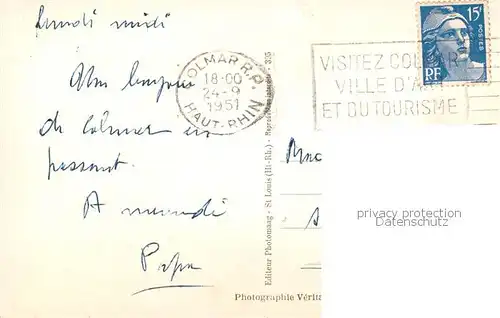 lundi midi
Un bonjour
de Colmar en
passant.
A mercredi
Papa
COLMAR R.P.
18-00
24-9
1951
HAUT-RHIN
VISITEZ COLMAR
VILLE D'ART
ET DU TOURISME
15F
POSTES
RF
Editeur Photomaag - St Louis (Ht-Rh.) - Reproduction interdite - 335
privacy protection
Datenschutz
Photographie Vérita